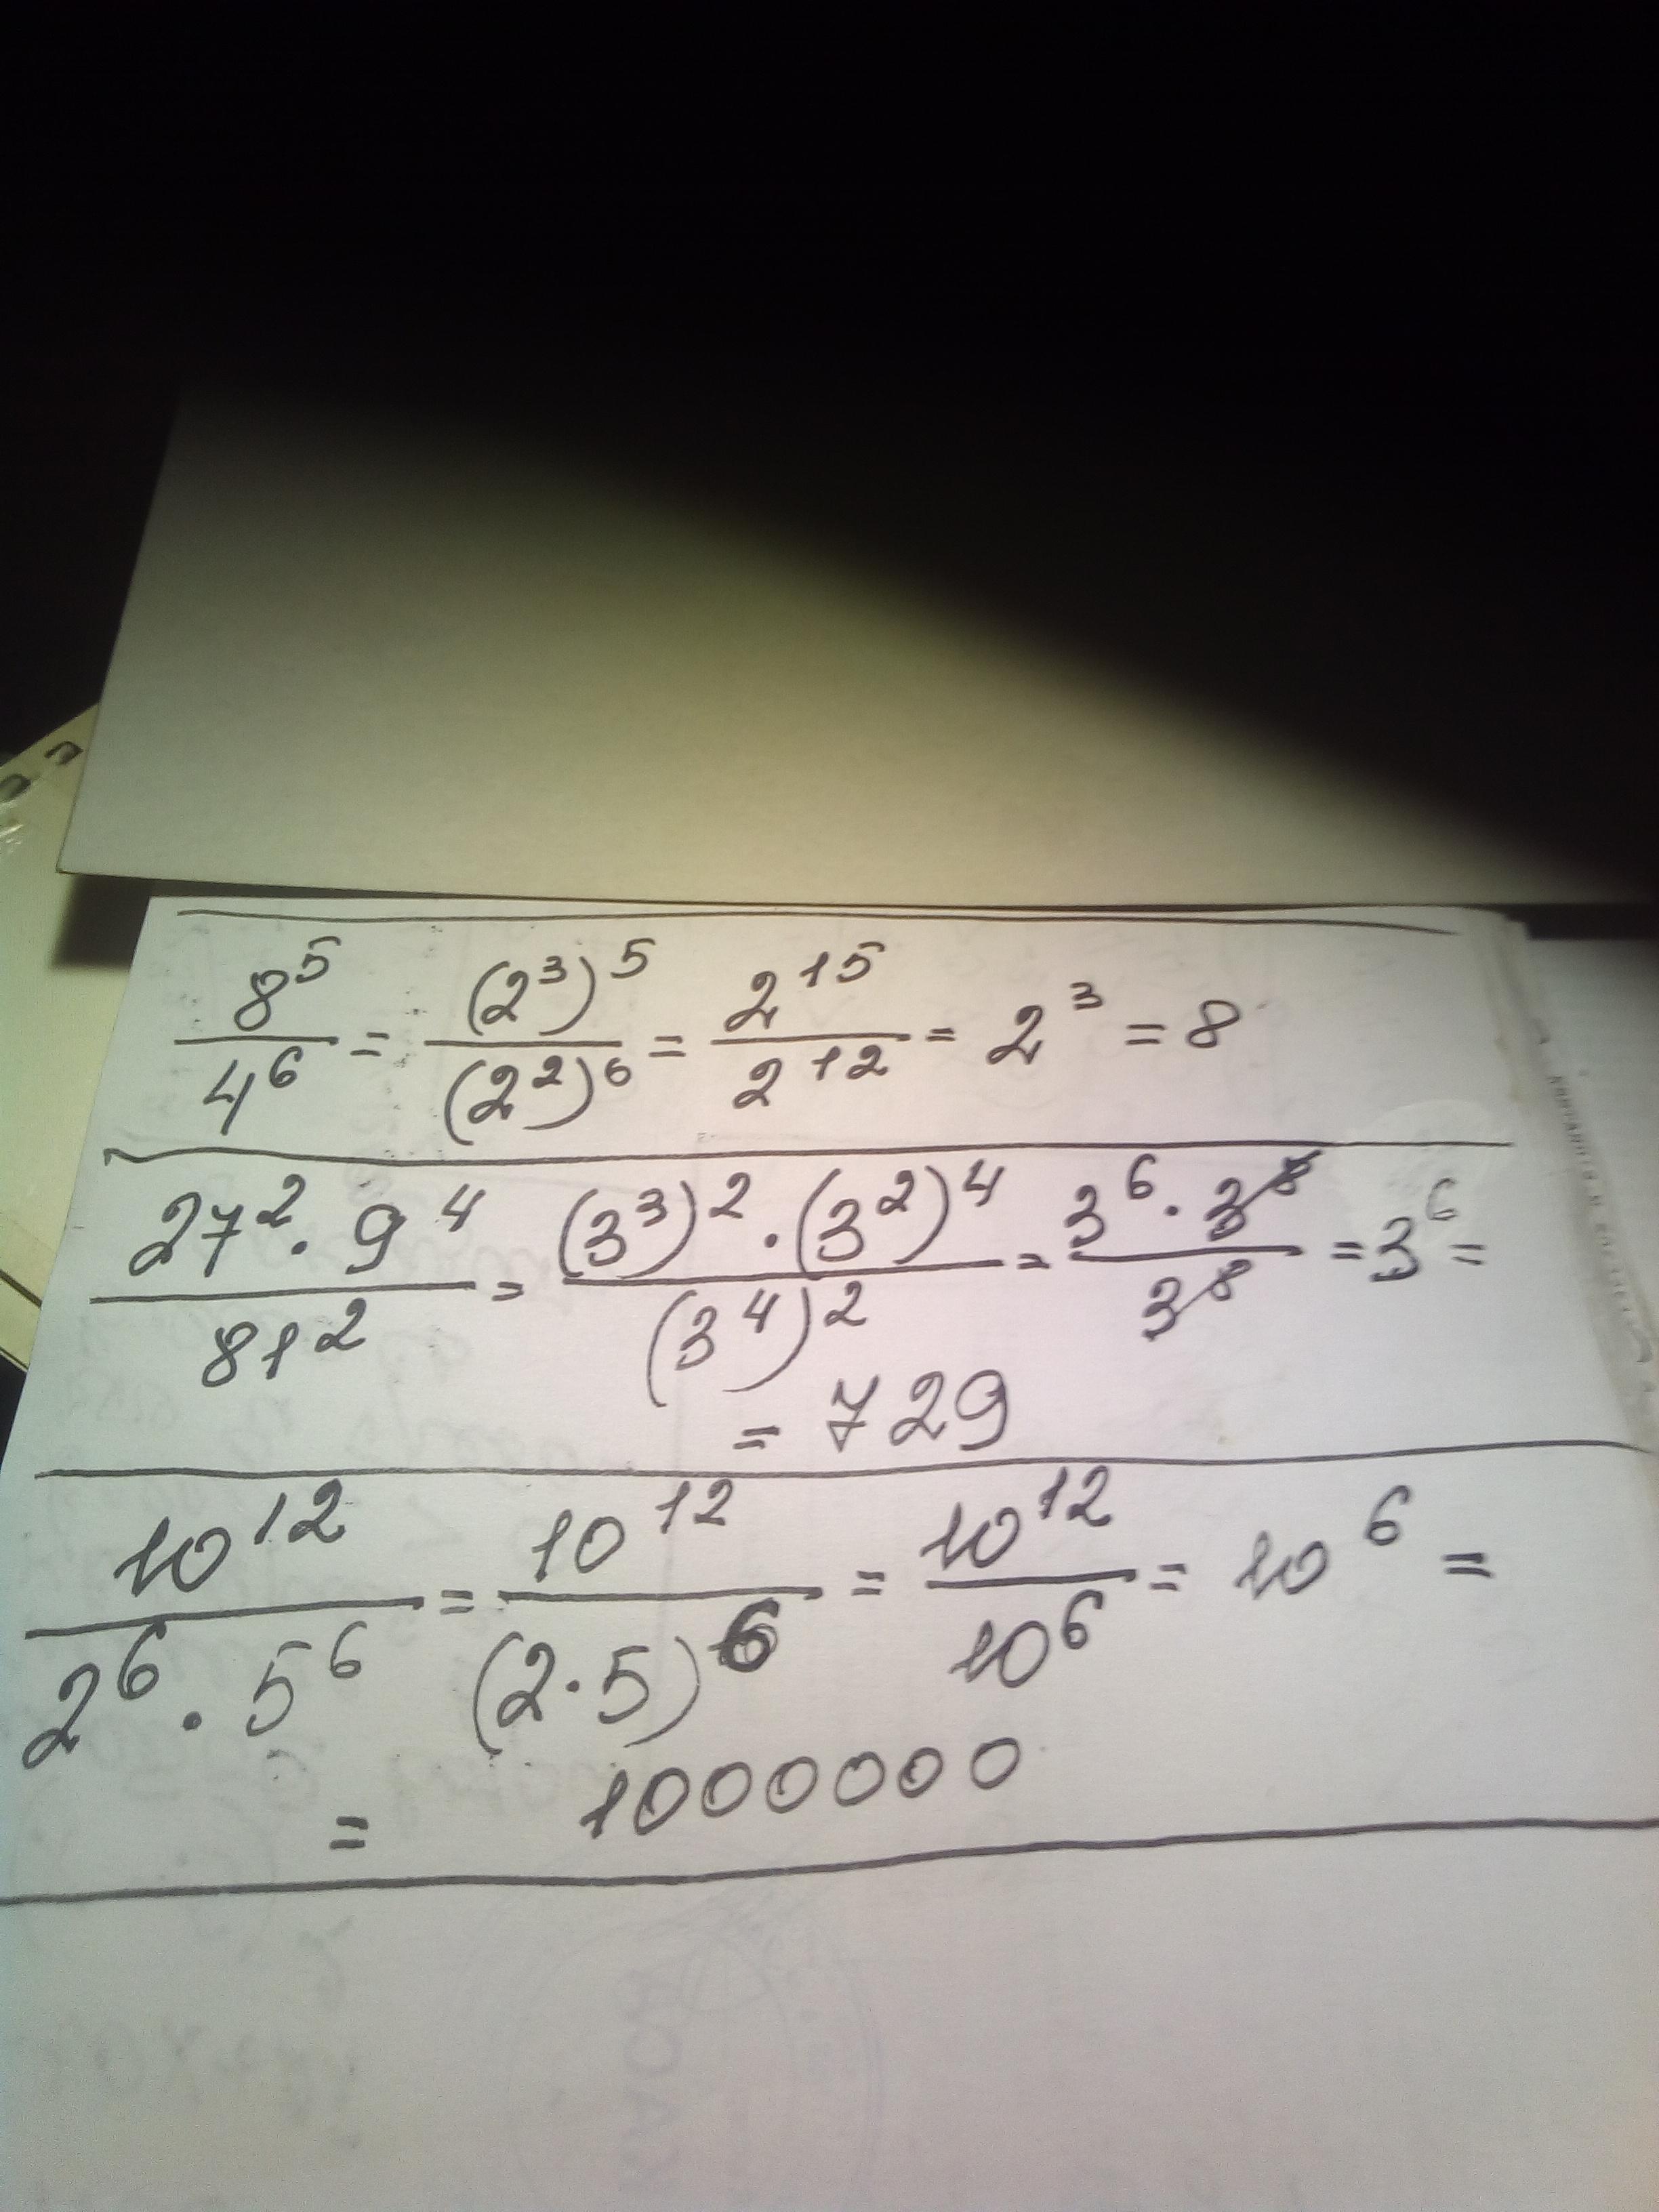 8^5/4^6 = (2^3)^5/(2^2)^6 = 2^15/2^12 = 2^3 = 8
27^2 · 9^4/81^2 = (3^3)^2 · (3^2)^4/(3^4)^2 = 3^6 · 3^8/3^8 = 3^6 =
= 729
10^12/2^6 · 5^6 = 10^12/(2 · 5)^6 = 10^12/10^6 = 10^6 =
= 1000000